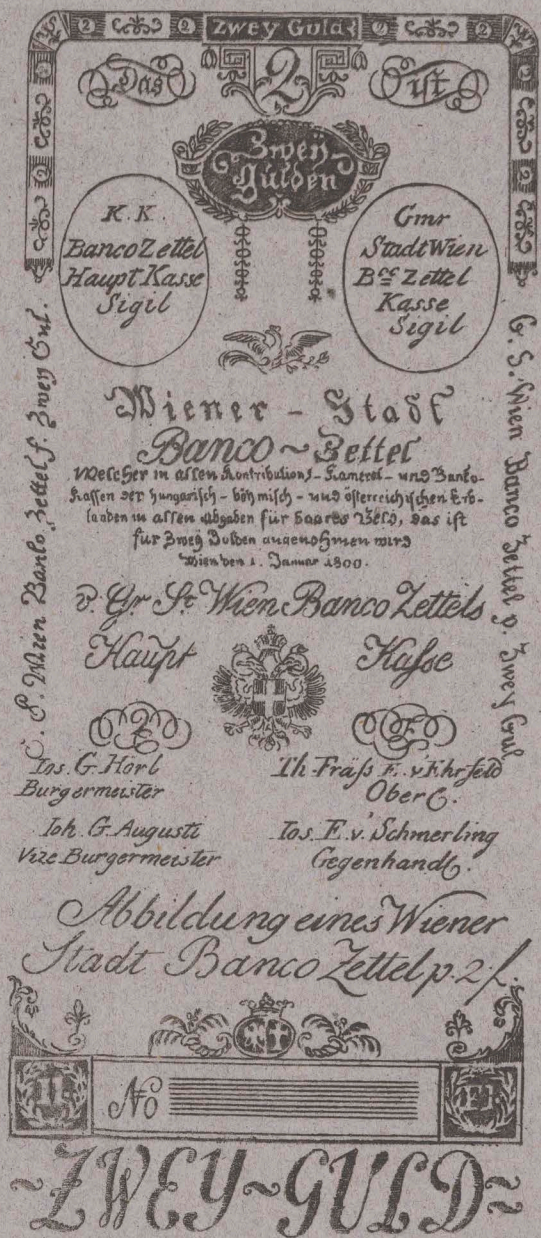 2 2 Zwey Guld 2 2
Das 2 ist
Zwey
Gulden
K. K.
Banco Zettel
Haupt Kasse
Sigil
Gmr
Stadt Wien
Bco Zettel
Kasse
Sigil
S. Wien Banco Zettel f. Zwey Gul.
G. S. Wien Banco Zettel p. Zwey Gul
Wiener - Stadt
Banco ~ Zettel
Welcher in allen Kontributions - Kameral - und Banko-
Kassen der hungarisch - böhmisch - und österreichischen Erb-
landen in allen Abgaben für baares Geld, das ist
für Zwey Gulden angenohmen wird
Wien den 1. Januar 1800.
Gr St Wien Banco Zettels
Haupt Kasse
2 F
Ios. G. Hörl
Burgermeister
Th. Fräss E. v Ehrfeld
Ober C.
Ioh. G. Augusti
Vize Burgermeister
Ios. E. v. Schmerling
Gegenhandl.
Abbildung eines Wiener
Stadt Banco Zettel p. 2 f.
II No Fl
~ZWEY~GULD~